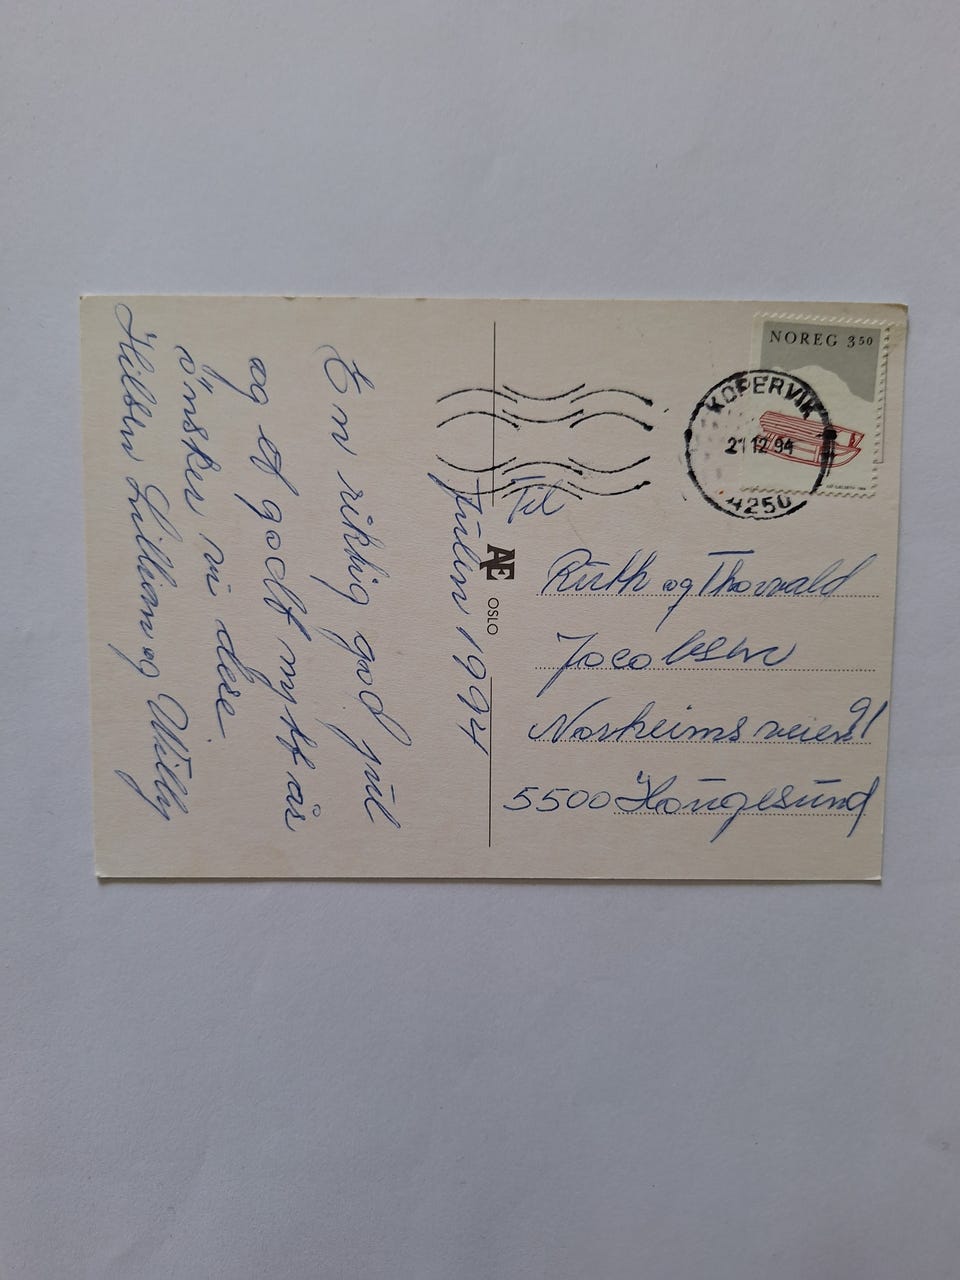 Julen 1994
En riktig god jul
og et godt nytt år
önsker vi dere.
Hilsen Lillian og Willy
NOREG 350
KOPERVIK
21 12 94
4250
AE
OSLO
Til
Ruth og Thorvald
Jacobsen
Norheimsveien 91
5500 Haugesund